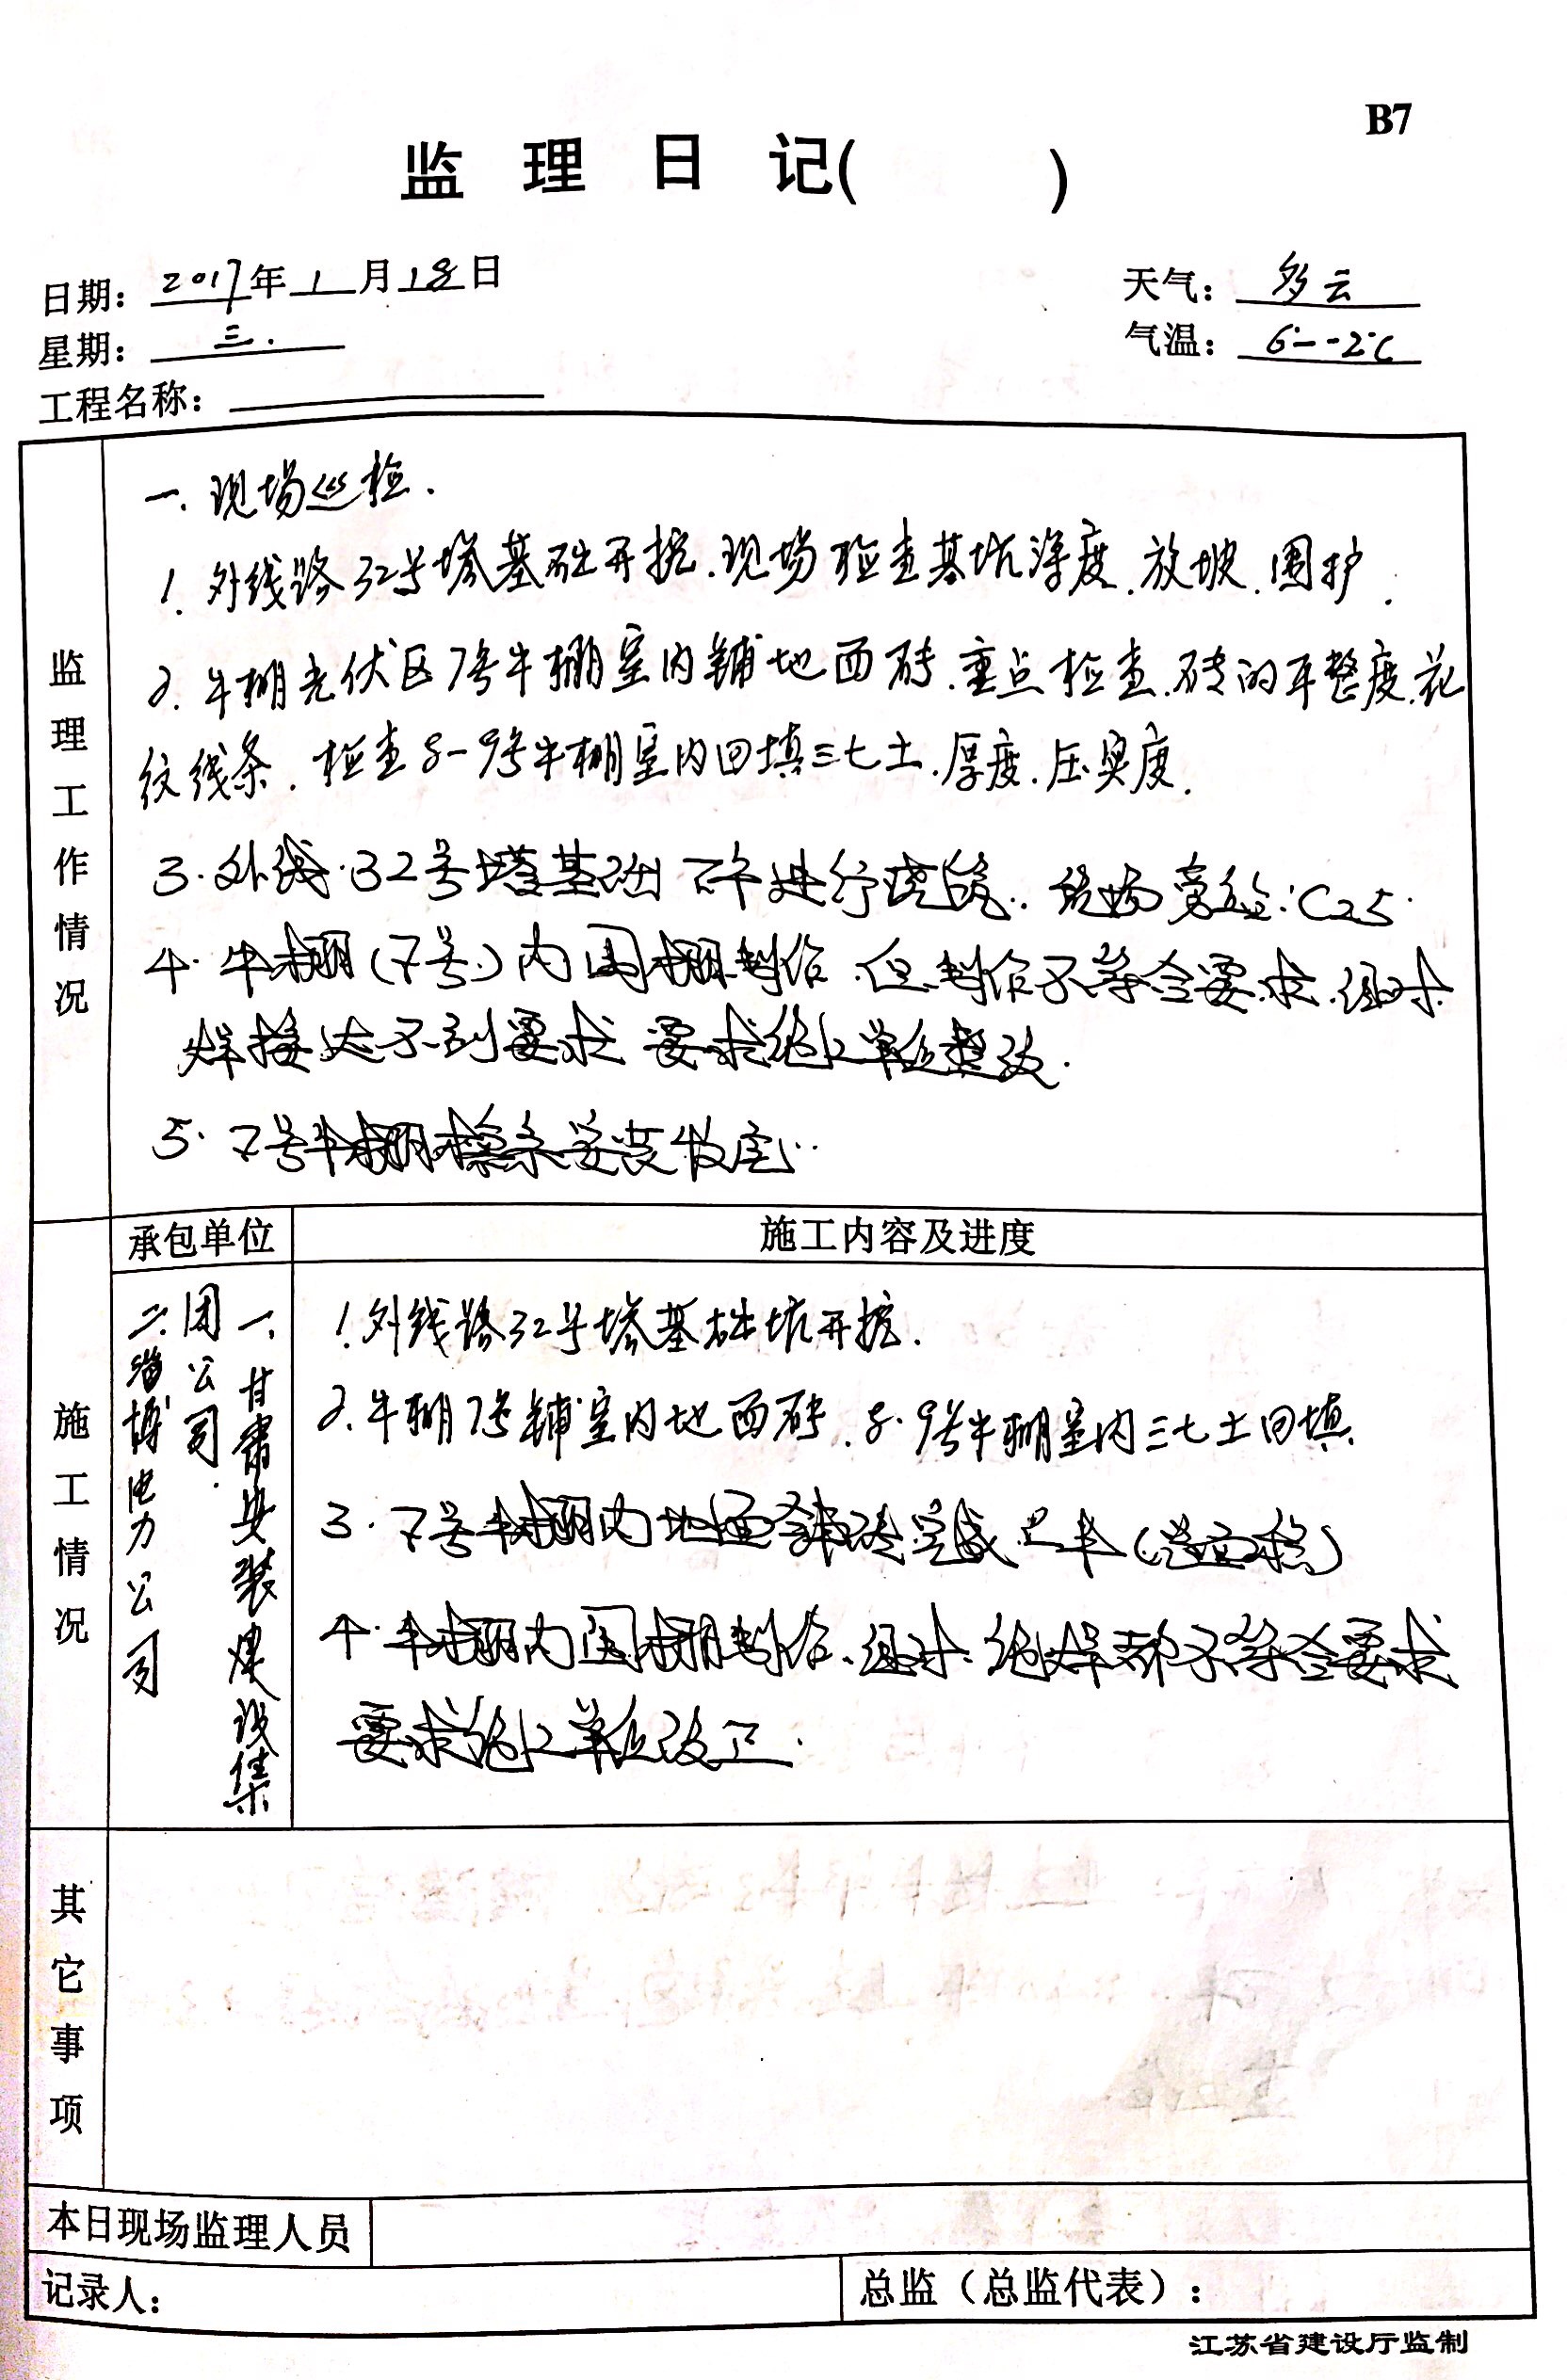 B7
监理日记( )
日期：2017年1月18日
天气：多云
星期：三.
气温：6°--2℃
工程名称：
监理工作情况
一.现场巡检.
1.外线路32号塔基础开挖.现场检查基坑深度.放坡.围护.
2.牛棚光伏区7号牛棚室内铺地面砖.重点检查.砖的平整度.花
纹线条.检查8-9号牛棚室内回填三七土.厚度.压实度.
3.外线.32号塔基础砼进行浇筑..现场旁站:C25.
4.牛棚(7号)内围栅制作.但制作不符合要求.组对.
焊接达不到要求 要求施工单位整改.
5.7号牛棚檩条安装
承包单位
施工内容及进度
施工情况
一.甘肃安装建设集
团公司.
二.淄博电力公司
1.外线路32号塔基础坑开挖.
2.牛棚7号铺室内地面砖.8.9号牛棚室内三七土回填.
3.7号牛棚内地面铺砖完成一半(总面积)
4.牛棚内围栅制作.组对.施焊都不符合要求
要求施工单位改正.
其它事项
本日现场监理人员
记录人：
总监（总监代表）：
江苏省建设厅监制